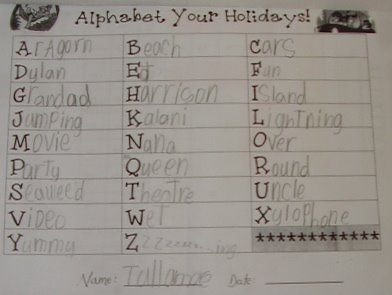 Alphabet Your Holidays!
Aragorn Beach Cars
Dylan Ed Fun
Grandad Harrison Island
Jumping Kalani Lightning
Movie Nana Over
Party Queen Round
Seaweed Theatre Uncle
Video Wet Xylophone
Yummy Zzzzzzz...ing ************
Name: Date: